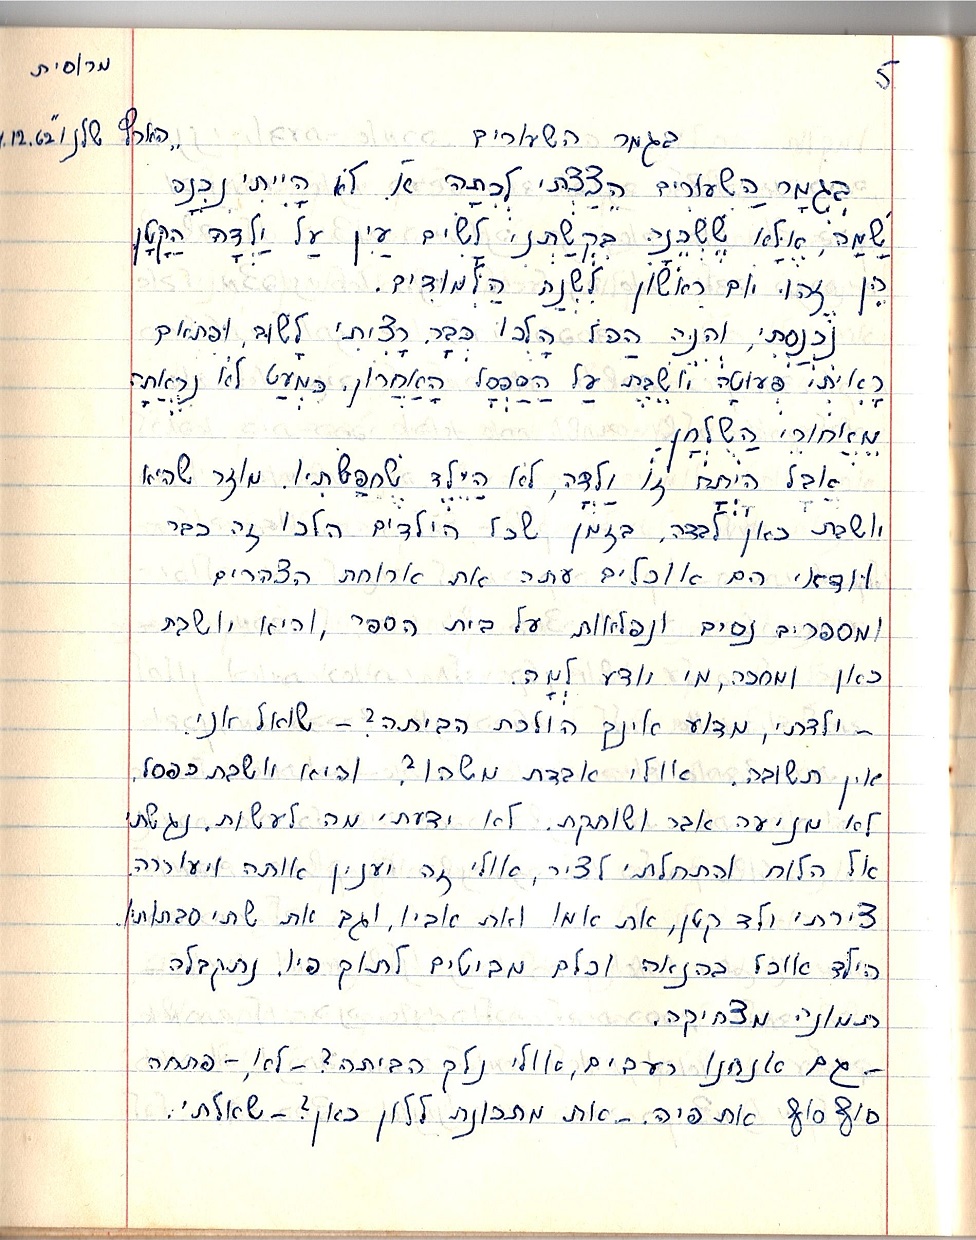 מרוסית
5
בגמר השעורים
"הארץ שלנו" 12.62.
בִּגְמַר הַשעורים הֵצַצְתִּי לַכִּתָּה אוֹ לֹא הָיִיתִי נִכְנָס
שָׁמָּה, אִילּא שֶׁשְּׁכֵנָה בִּקְשַׁתְנִי לָשִׂים עַיִן עַל יַלְדָהּ הַקָּטָן
הֵן זֶהוּ יום רִאשׁוֹן לִשְׁנַת הַלִּמּוּדים.
נִכְנַסְתִּי, והנה הַכּל הָלְכוּ כְּבָר, רָצִיתִי לָשׁוּב, וּפתאום
רָאִיתִי פְּעוּטָה יוֹשֶׁבֶת עַל הַסַּפְסָל הָאַחֲרוֹן, כִּמְעַט לֹא נִרְאֲתָה
מֵאֲחוֹרֵי הַשֻּׁלְחָן.
אֲבָל הָיְתָה זוֹ יַלְדָּה, לֹא הַיֶּלֶד שֶׁחִפַּשְׂתִּיו. מוזר שהיא
יושבת כאן לְבַדָּהּ, בזמן שכל הילדים הלכו זה כבר
וודאי הם אוכלים עתה את ארוחת הצהרים
ומספרים נסים ונפלאות על בית הספר, והיא יושבת
כאן ומחכה, מי יודע לְמָה.
– ילדתי, מדוע אינך הולכת הביתה? – שואל אני.
אין תשובה. אולי אבדת משהו? והיא יושבת כפסל,
לא מניעה אבר ושותקת. לא ידעתי מה לעשות. נגשתי
אל הלוח והתחלתי לציר, אולי זה יענין אותה ויעוררה.
צירתי ילד קטן, את אמו ואת אביו, וגם את שתי סבתותיו.
הילד אוכל בהנאה וכלם מביטים לתוך פיו. נתקבלה
תמונה מצחיקה.
– גם אנחנו רעבים, אולי נלך הביתה? – לא, – פתחה
סוף סוף את פיה. – את מתכונת ללון כאן? – שאלתי.